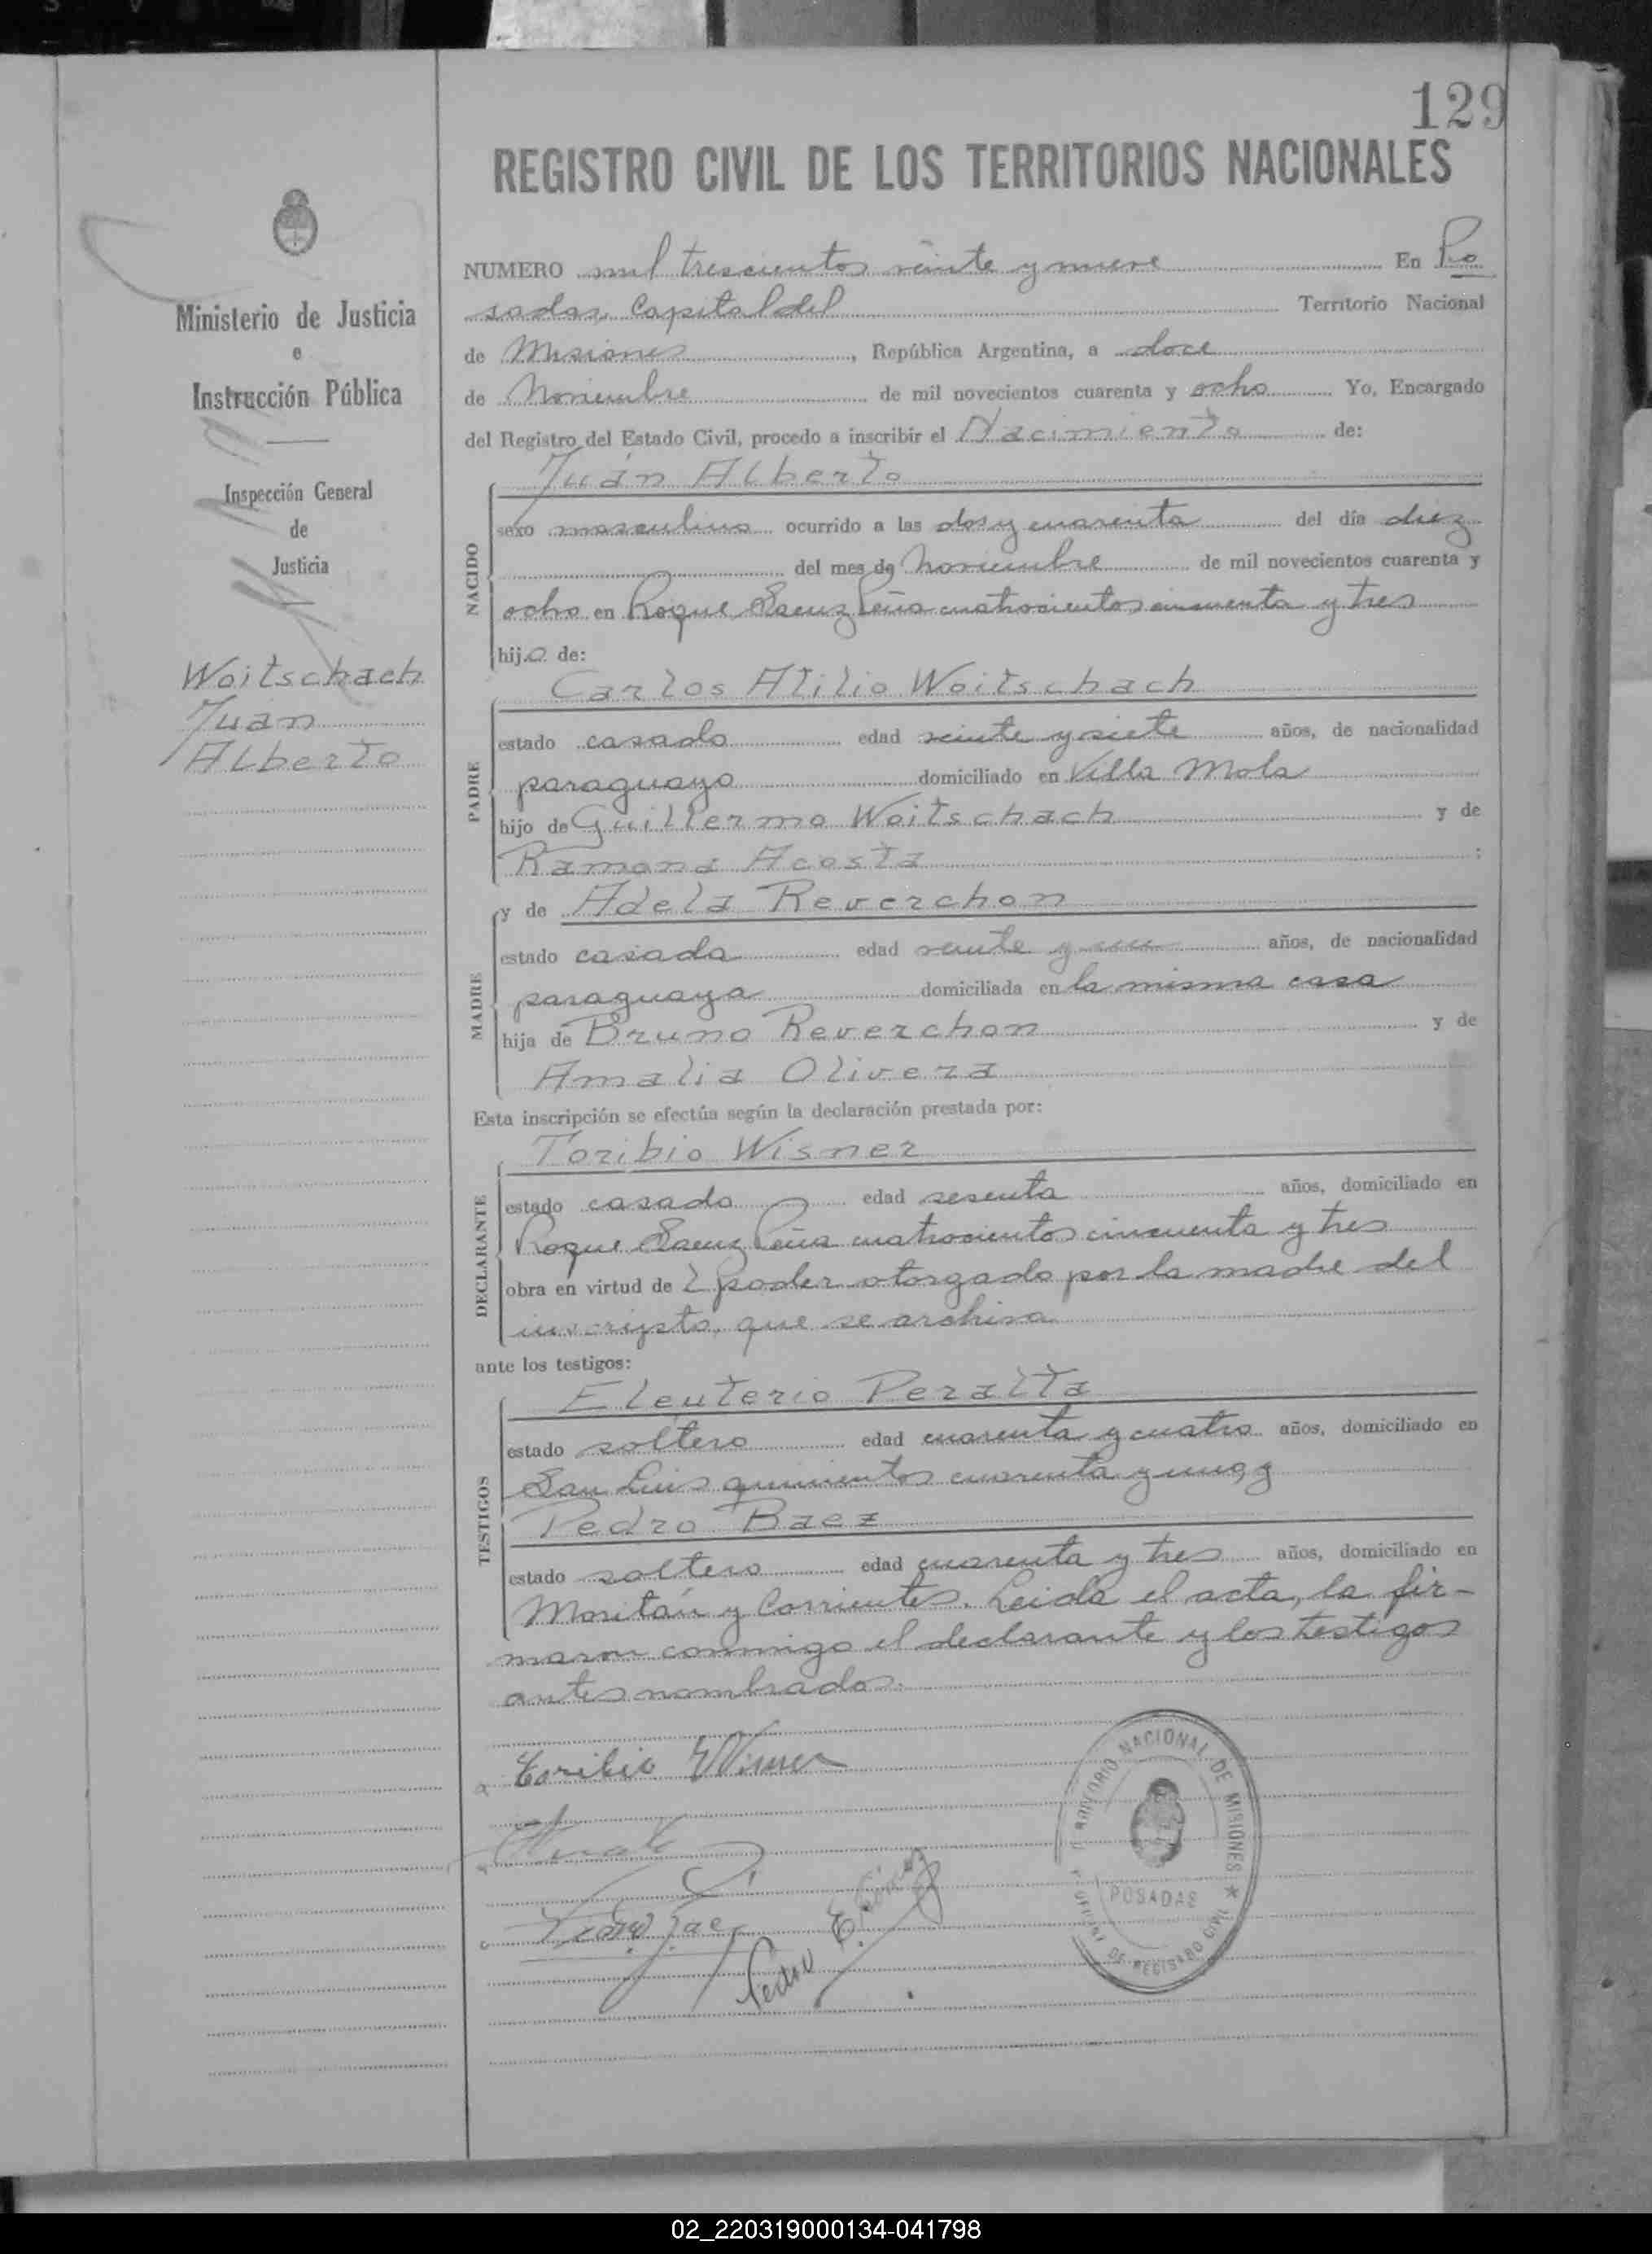 129
REGISTRO CIVIL DE LOS TERRITORIOS NACIONALES
Ministerio de Justicia
e
Instrucción Pública
Inspección General
de
Justicia
Woitschach
Juan
Alberto
NUMERO mil trescientos veinte y nueve En Po
sadas, Capital del Territorio Nacional
de Misiones, República Argentina, a doce
de Noviembre de mil novecientos cuarenta y ocho Yo, Encargado
del Registro del Estado Civil, procedo a inscribir el Nacimiento de:
Juan Alberto
NACIDO
sexo masculino ocurrido a las dos y cuarenta del día diez
del mes de noviembre de mil novecientos cuarenta y
ocho en Roque Saenz Peña cuatrocientos cincuenta y tres
hijo de:
Carlos Atilio Woitschach
PADRE
estado casado edad veinte y siete años, de nacionalidad
paraguayo domiciliado en Villa Mola
hijo de Guillermo Woitschach y de
Ramona Acosta ;
y de Adela Reverchon
MADRE
estado casada edad veinte y un años, de nacionalidad
paraguaya domiciliada en la misma casa
hija de Bruno Reverchon y de
Amalia Olivera
Esta inscripción se efectúa según la declaración prestada por:
Toribio Wisner
DECLARANTE
estado casado edad sesenta años, domiciliado en
Roque Saenz Peña cuatrocientos cincuenta y tres
obra en virtud de poder otorgado por la madre del
inscripto, que se archiva
ante los testigos:
Eleuterio Peralta
TESTIGOS
estado soltero edad cuarenta y cuatro años, domiciliado en
San Luis quinientos cuarenta y uno, y
Pedro Baez
estado soltero edad cuarenta y tres años, domiciliado en
Moritán y Corrientes. Leida el acta, la fir-
maron conmigo el declarante y los testigos
antes nombrados.
Toribio Wisner
Pedro E.
TERRITORIO NACIONAL DE MISIONES
POSADAS
OFICINA DE REGISTRO CIVIL
02_220319000134-041798